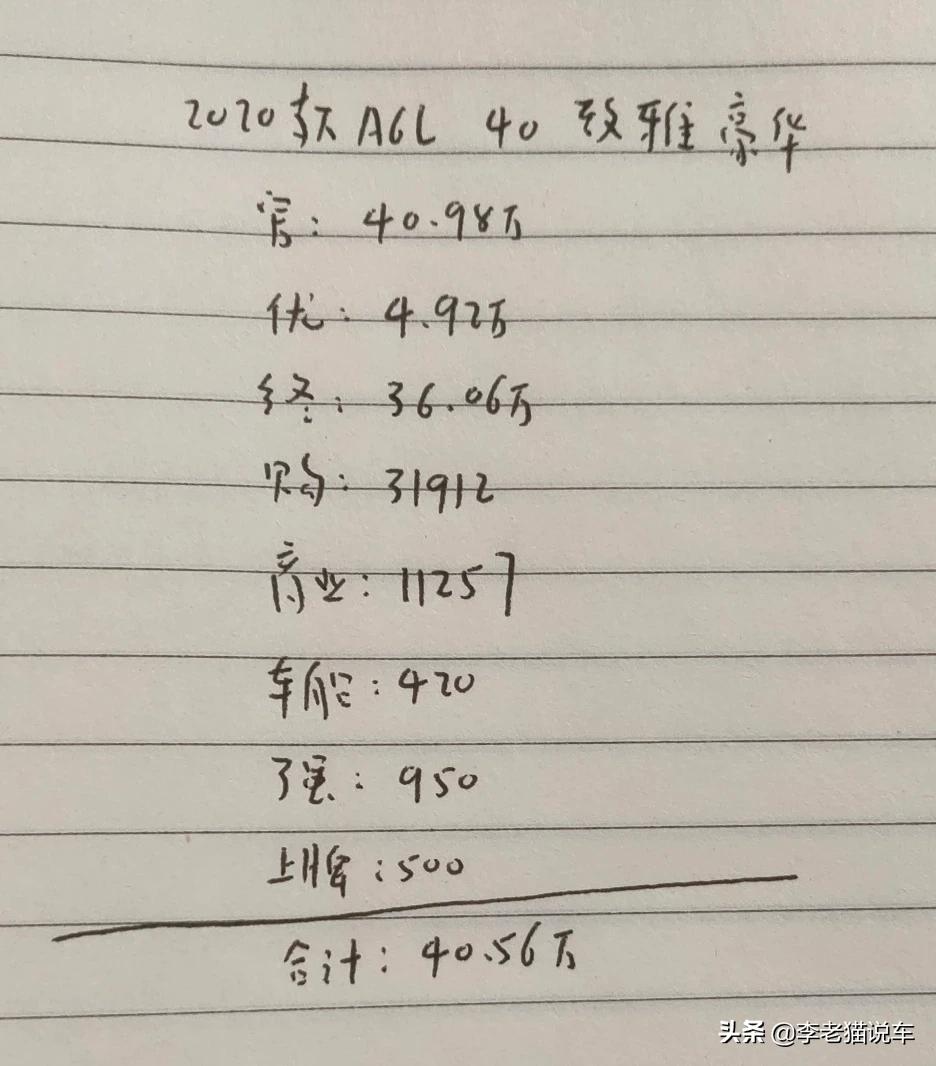 2020款A6L 40 致雅豪华
官：40.98万
优：4.92万
终：36.06万
购：31912
商业：11257
车船：420
强：950
上牌：500
合计：40.56万
头条 @李老猫说车